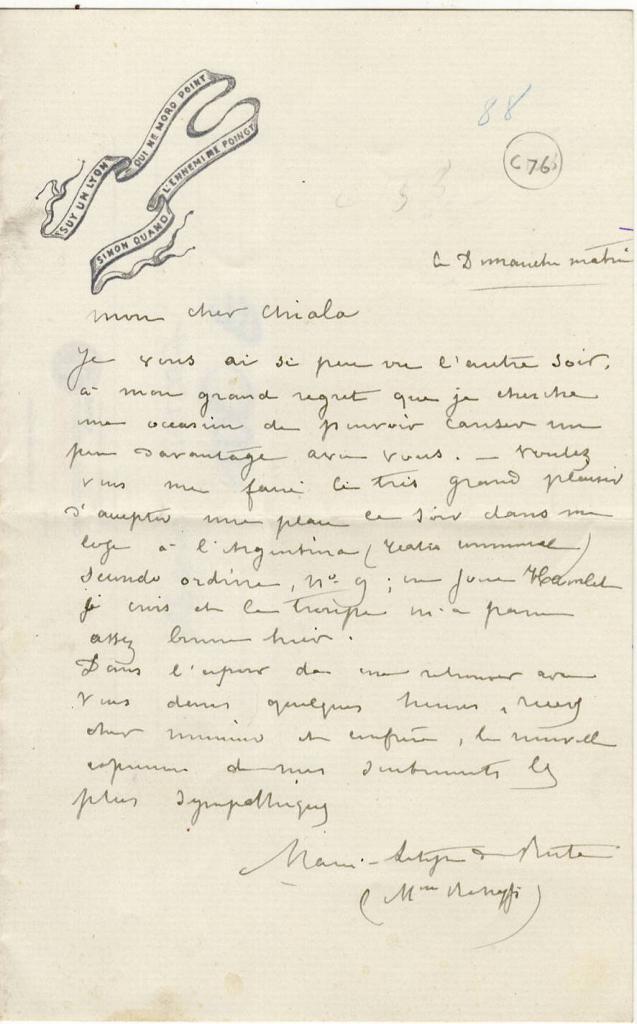 SUY UN LYON
QUI NE MORD POINT
SINON QUAND
L'ENNEMI ME POINGT
88
C 76
Ce Dimanche matin
mon cher Chiala
Je vous ai si peu vu l'autre soir,
à mon grand regret que je cherche
une occasion de pouvoir causer un
peu davantage avec vous. — Voulez
vous me faire le très grand plaisir
d'accepter une place ce soir dans ma
loge à l'Argentina (teatro communale)
secundo ordine, no. 9; on joue Hamlet
je crois et la troupe m'a paru
assez bonne hier.
Dans l'espoir de me retrouver avec
vous dans quelques heures, recevez
cher et confrère, la nouvelle
expression de mes sentiments les
plus sympathiques
Marie-Letizia de Rute
(Mme)